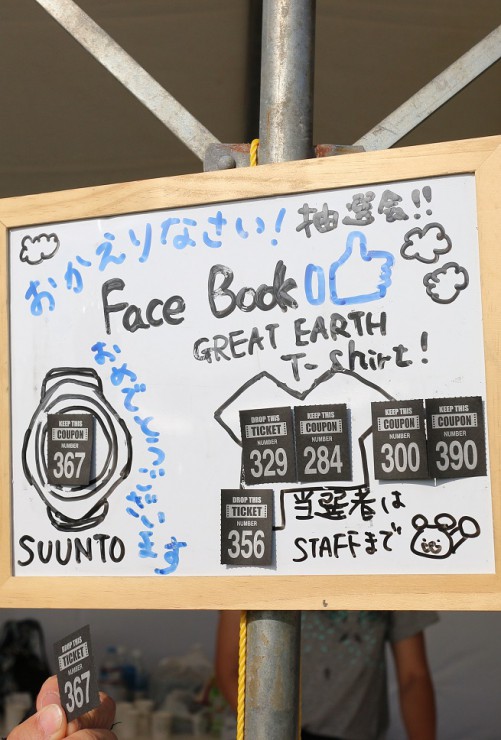 おかえりなさい! 抽選会!!
Face Book
GREAT EARTH
T-Shirt!
おめでとうございます
KEEP THIS
COUPON
NUMBER
367
SUUNTO
DROP THIS
TICKET
NUMBER
329
KEEP THIS
COUPON
NUMBER
284
KEEP THIS
COUPON
NUMBER
300
KEEP THIS
COUPON
NUMBER
390
DROP THIS
TICKET
NUMBER
356
当選者は
STAFFまで
DROP THIS
TICKET
NUMBER
367